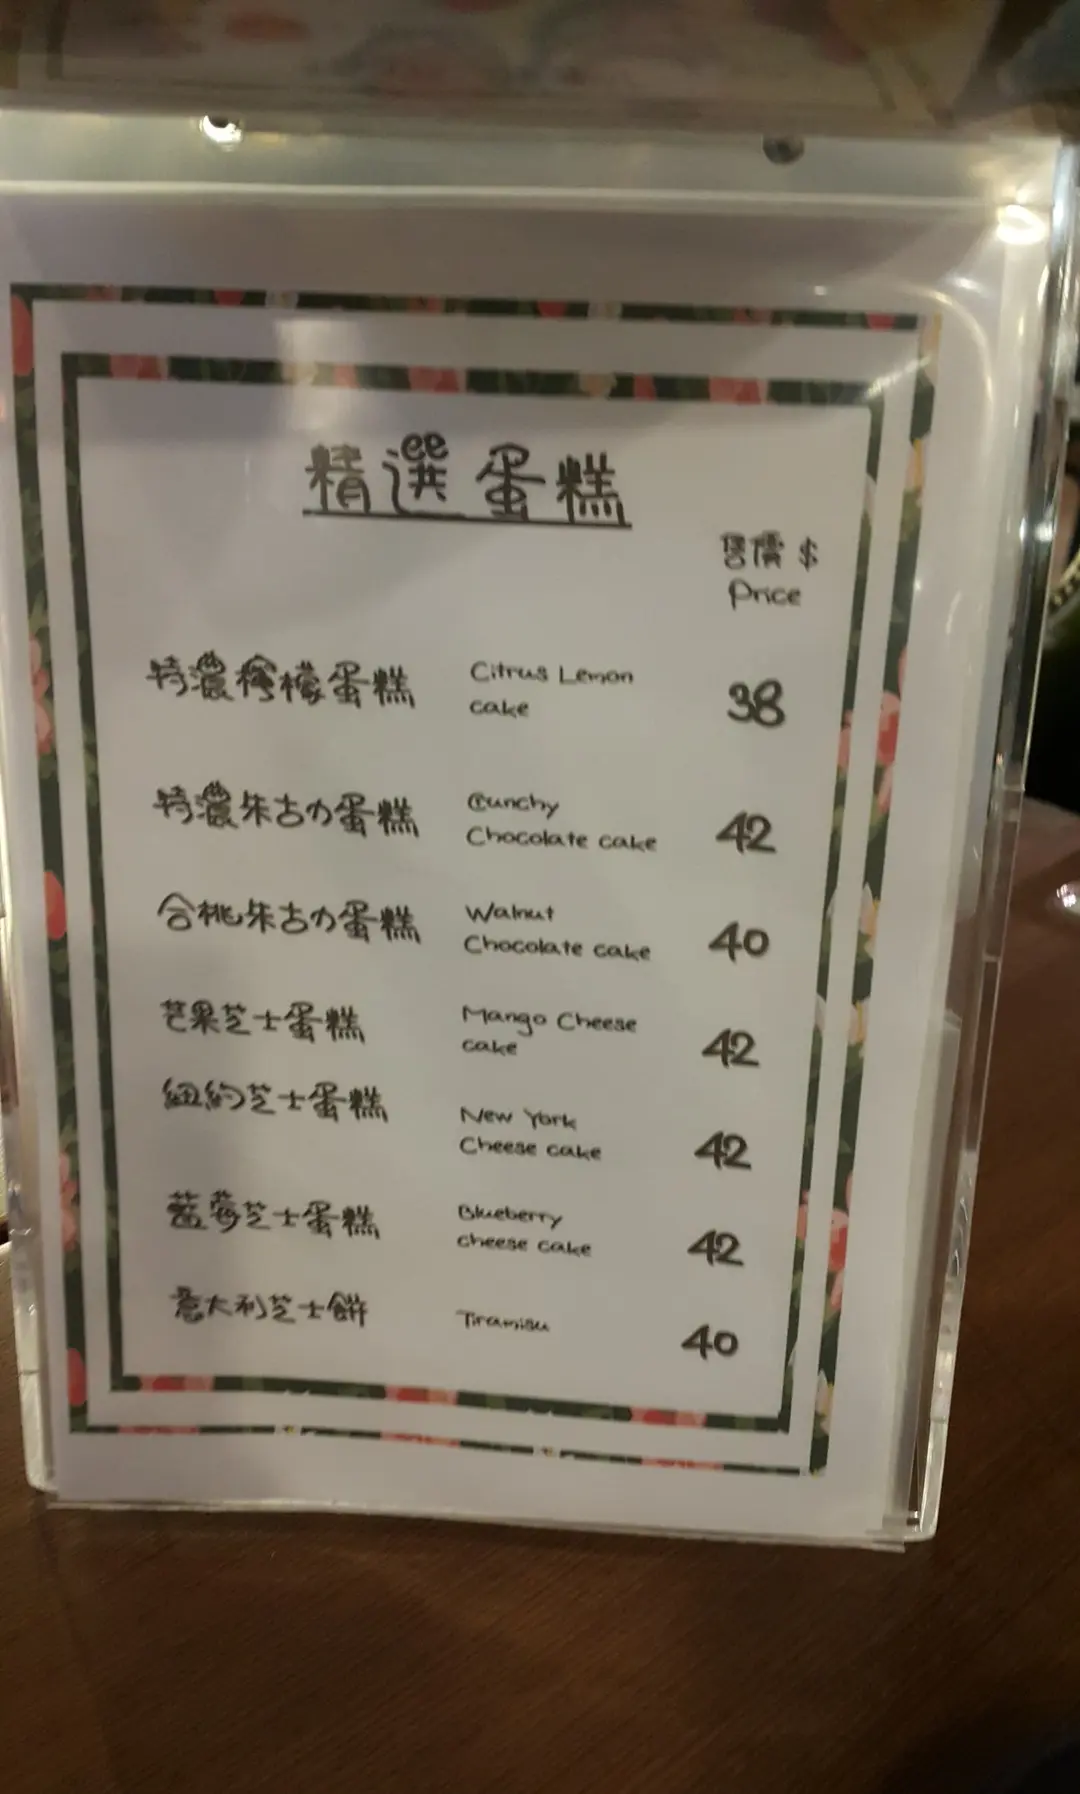 精選蛋糕
售價 $
Price
特濃檸檬蛋糕 Citrus Lemon
cake 38
特濃朱古力蛋糕 Crunchy
Chocolate cake 42
合桃朱古力蛋糕 Walnut
Chocolate cake 40
芒果芝士蛋糕 Mango Cheese
cake 42
紐約芝士蛋糕 New York
Cheese cake 42
藍莓芝士蛋糕 Blueberry
cheese cake 42
意大利芝士餅 Tiramisu 40